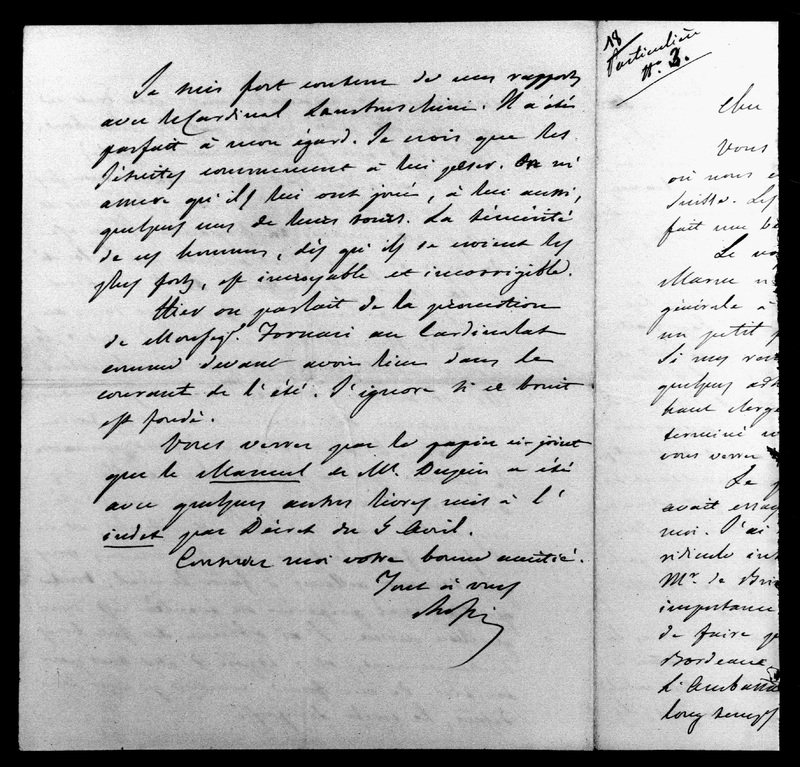 Je suis fort content de mes rapports
avec le Cardinal Lambruschini. Il a été
parfait à mon égard. Je crois que les
Jésuites commencent à lui peser. On m'
assure qu'ils lui ont joué, à lui aussi,
quelques uns de leurs tours. La témérité
de ces hommes, dès qu'ils se croient les
plus forts, est incroyable et incorrigible.
Hier on parlait de la promotion
de Monseigr. Fornari au Cardinalat
comme devant avoir lieu dans le
courant de l'été. J'ignore si ce bruit
est fondé.
Vous verrez par le papier ci-joint
que le Manuel de Mr. Dupin a été
avec quelques autres livres mis à l'
index par Décret du 5 Avril.
Conservez moi votre bonne amitié.
Tout à vous
Rossi
18
Particulière
No. 3.
Cher
Vous
où nous
Suisse. Les
fait une
Le
générale à
un petit
Si nous
quelques
haut clergé
terminé
vous verrez
Le
avait
moi. J'ai
ridicule
Mr. de
importance
de faire
Bordeaux
L'Ambassa
long temps